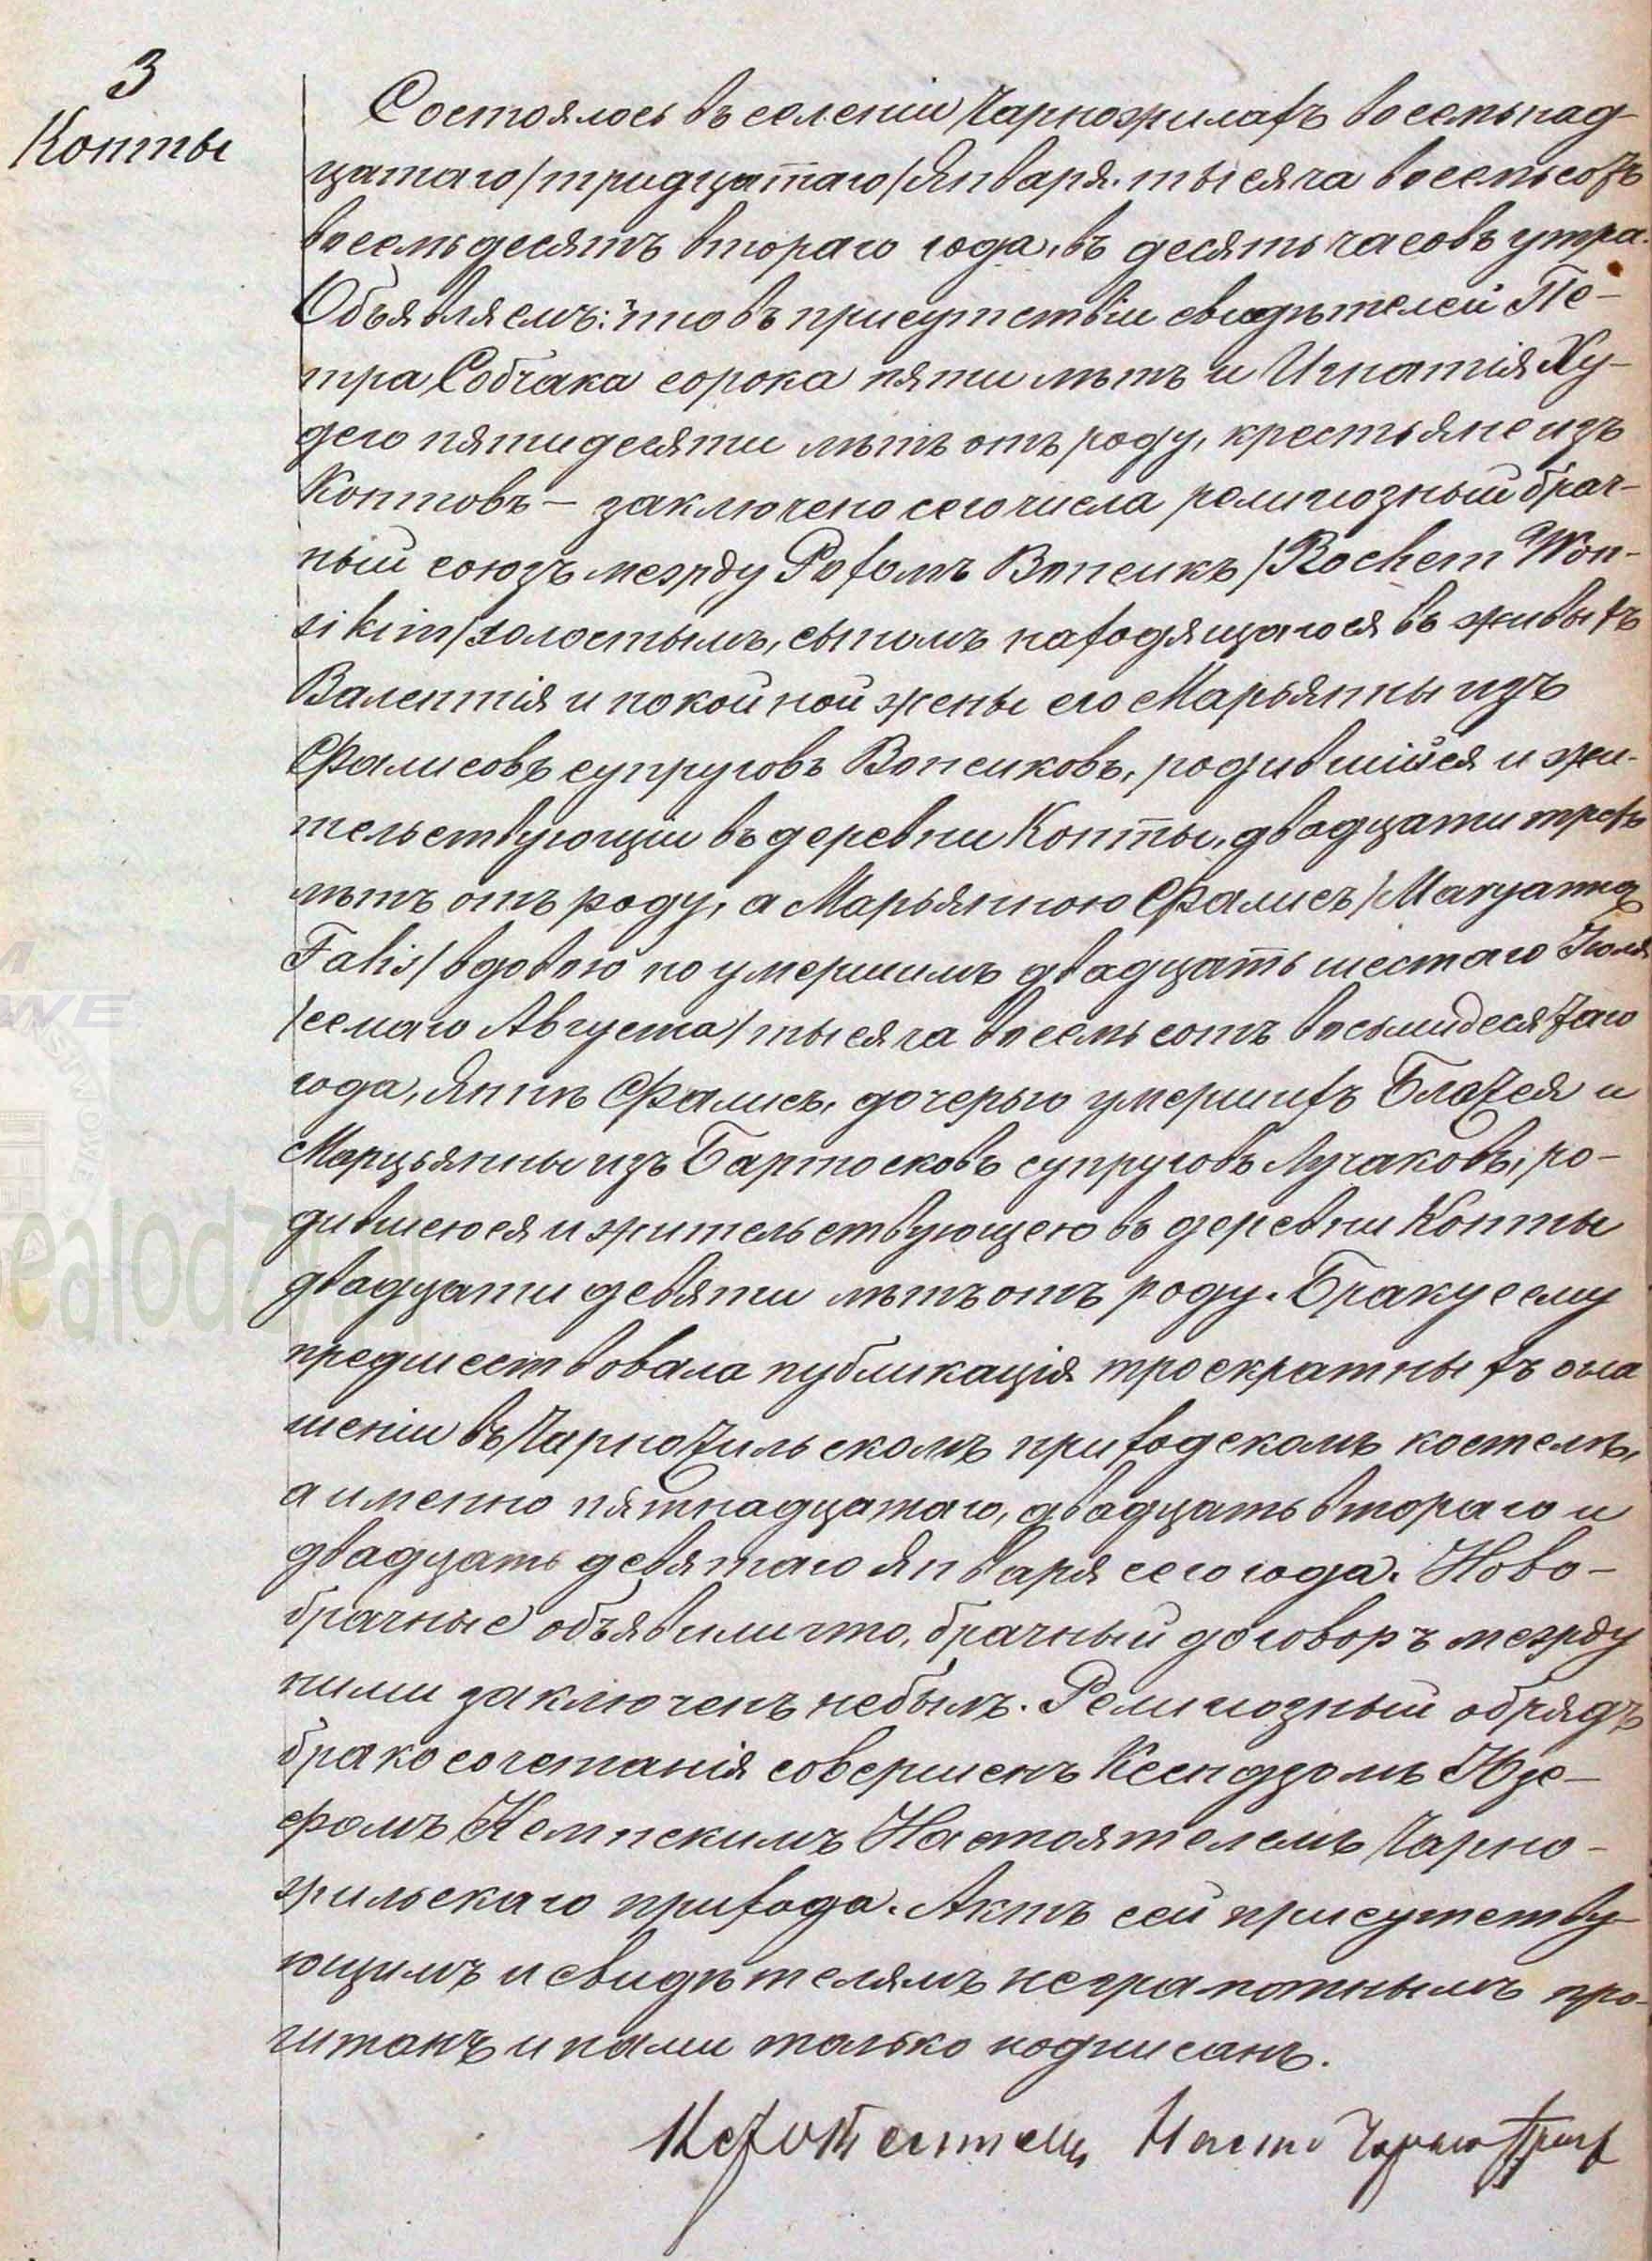 3
Конты
Состоялось въ селеніи Чарножилахъ восемьнад-
цатаго /тридцатаго/ Января тысяча восемьсотъ
восемьдесятъ втораго года, въ десять часовъ утра.
Объявляемъ: что въ присутствіи свидѣтелей Пе-
тра Собчака сорока пяти лѣтъ и Игнатія Ху-
дего пятидесяти лѣтъ отъ роду, крестьяне изъ
Контовъ – заключено сего числа религіозный брач-
ный союзъ между Рохомъ Вонсикъ /Rochem Won-
sikim/ холостымъ, сыномъ находящагося въ живыхъ
Валентія и покойной жены его Марьянны изъ
Фалисовъ супруговъ Вонсиковъ, родившійся и жи-
тельствующій въ деревни Конты, двадцати трехъ
лѣтъ отъ роду, а Марьянною Фалисъ /Maryanną
Falis/ вдовою по умершимъ двадцать шестаго Іюля
/семаго Августа/ тысяча восемьсотъ восьмидесятаго
года, Янѣ Фалисъ, дочерью умершихъ Блажея и
Марцьянны изъ Бартосковъ супруговъ Лучаковъ, ро-
дившеюся и жительствующею въ деревни Конты
двадцати девяти лѣтъ отъ роду. Браку сему
предшествовала публикація троекратныхъ огла
шеніи въ Чарножильскомъ приходскомъ костелѣ,
а именно пятнадцатаго, двадцать втораго и
двадцать девятаго Января сего года. Ново-
брачные объявили что, брачный договоръ между
ними заключенъ небылъ. Религіозный обрядъ
бракосочетанія совершенъ Ксендзомъ Юзе-
фомъ Кемпскимъ Настоятелемъ Чарно-
жильскаго прихода. Актъ сей присутству-
ющимъ и свидѣтелямъ неграмотнымъ про-
читанъ и нами только подписанъ.